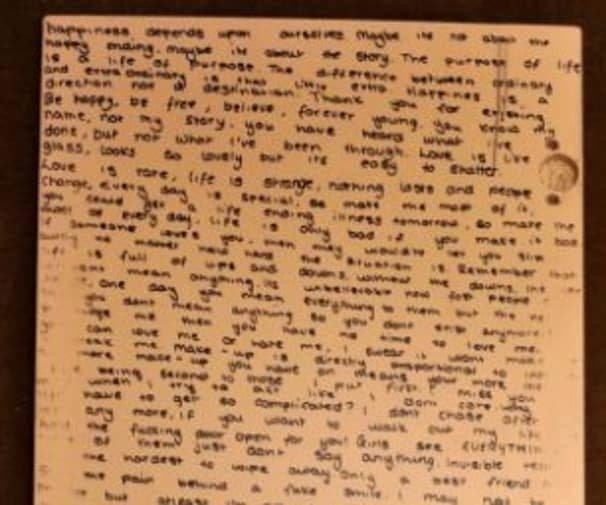 happiness depends upon ourselves maybe its not about the
happy ending, maybe its about the story. The purpose of life
is a life of purpose. The difference between ordinary
and extraordinary is that little extra Happiness is a
direction not a destination. Thank you for existing.
Be happy, be free, believe, forever young. you know my
name, not my story. you have heard what I've
done, but not what I've been through. Love is like
glass, looks so lovely but its easy to shatter.
Love is rare, life is strange, nothing lasts and people
change, every day is special, so make the most of it.
you could get a life ending illness tomorrow, so make the
most of every day. life is only bad if you make it bad
if someone loves you, then they wouldn't let you slip
no matter how hard the situation is. Remember that
is full of ups and downs, without the downs, the
mean anything. Its unbelievable how fast people
one day you mean everything to them but the
you dont mean anything so you dont exist anymore
me then you have no time to love me.
can love me or hate me, I swear it wont
me. make-up is directly proportional to
more make-up you have on means your more
being second to those I put first. I miss you
when I try to act like I dont care. why
have to get so complicated? I dont chase after
any more, if you want to walk out my life
the fucking door open for you! Girls see EVERYTHING
of them just dont say anything. Invisible
the hardest to wipe away. only a best friend
the pain behind a fake smile. I may not be
but atleast